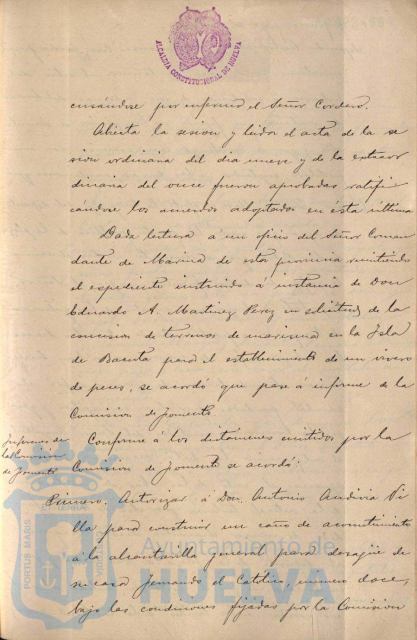 ALCALDIA CONSTITUCIONAL DE HUELVA
cusándose por enfermo el Señor Cordero.
Abierta la sesion y leidas el acta de la se
sion ordinaria del dia nueve y de la extraor
dinaria del once fueron aprobadas ratifi
cándose los acuerdos adoptados en ésta última
Dada lectura á un oficio del Señor Coman
dante de Marina de esta provincia remitiendo
el expediente instruido á instancia de Don
Eduardo A. Martinez Perez en solicitud de la
concesion de terrenos de marisma en la Isla
de Bacuta para el establecimiento de un vivero
de peces, se acordó que pase á informe de la
Comision de fomento
Informes de
la Comision
de fomento
Conforme á los dictámenes emitidos por la
Comision de fomento se acordó:
Primero. Autorizar á Don Antonio Vi
lla para construir un caño de acometimiento
á la alcantarilla general para desagüe de
su casa Fernando el Católico, número doce,
bajo las condiciones fijadas por la Comision
PORTUS MARIS
Ayuntamiento de
HUELVA